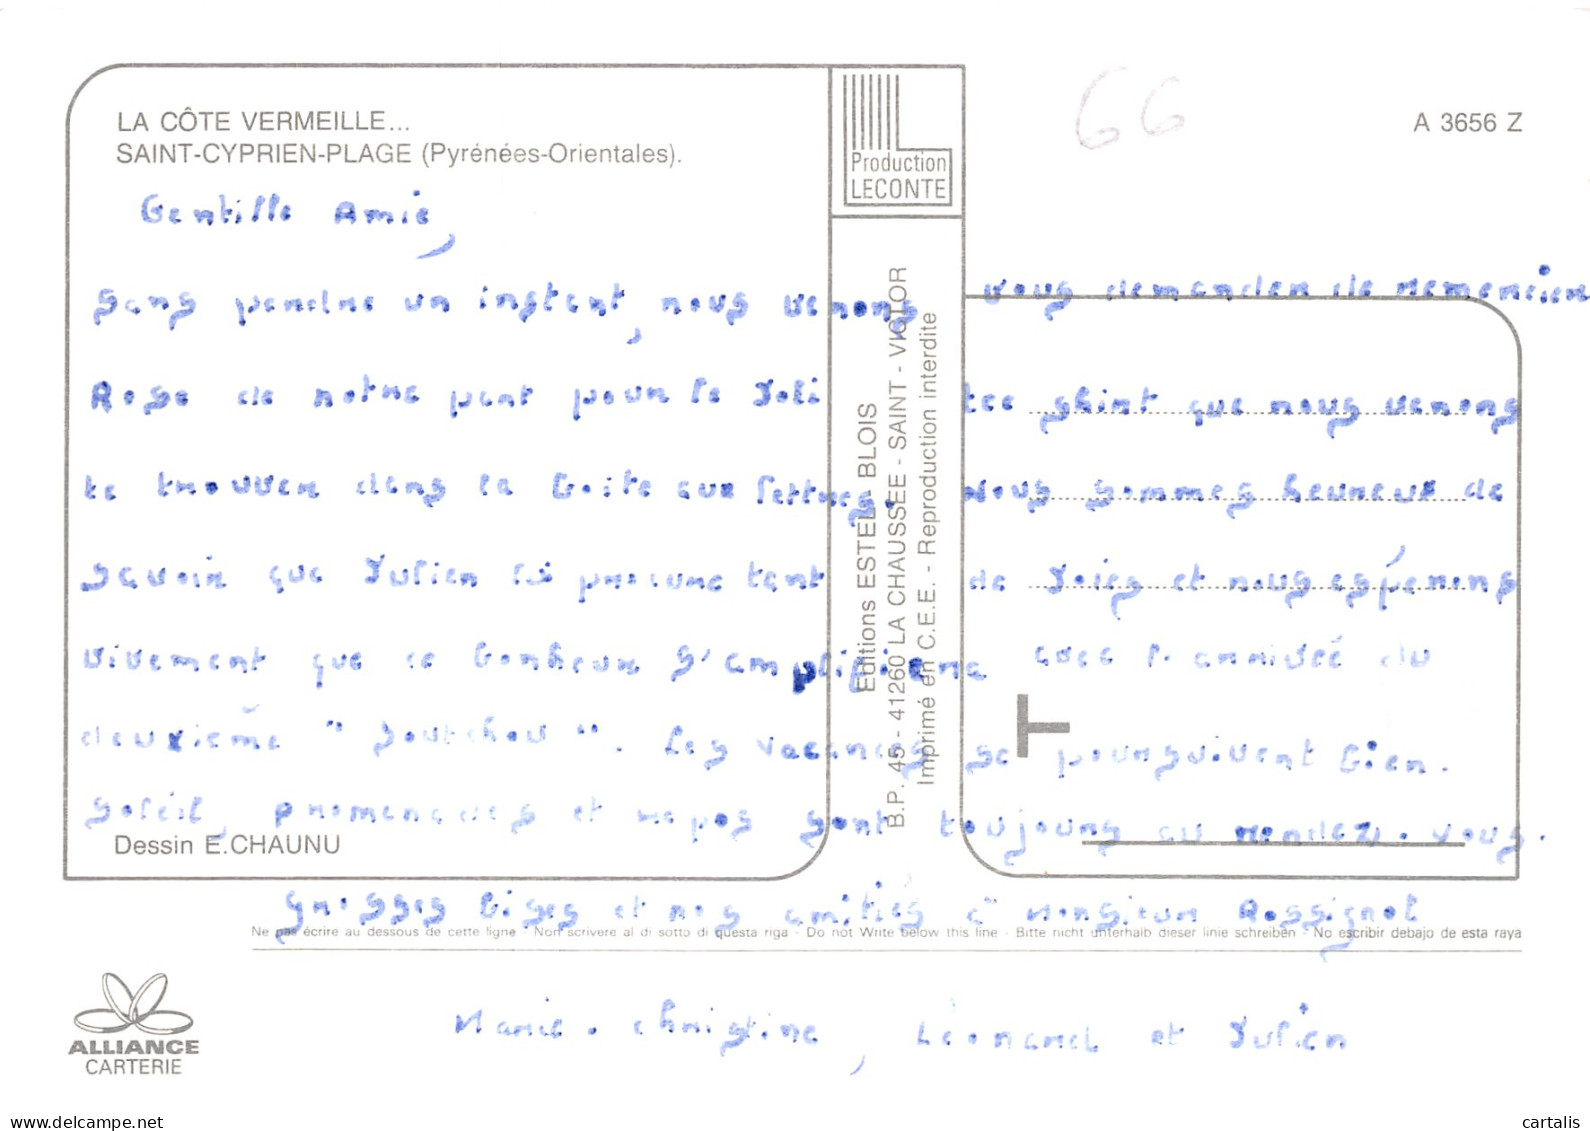 LA CÔTE VERMEILLE...
SAINT-CYPRIEN-PLAGE (Pyrénées-Orientales).
Production
LECONTE
66
A 3656 Z
Gentille Amie,
Sans perdre un instant, nous venons vous demander de remercier
Rose de notre part pour le joli tee shirt que nous venons
de trouver dans la boîte aux lettres. Nous sommes heureux de
savoir que Julien lui procure tant de joies et nous espérons
vivement que ce bonheur s'amplifiera avec l'arrivée du
deuxième " Loutchou ". Les vacances se poursuivent bien.
Soleil, promenades et repos sont toujours au rendez-vous.
Dessin E.CHAUNU
Grosses bises et nos amitiés à Monsieur Rossignol
Marie-Christine, Léonard et Julien
Editions ESTEL - BLOIS
B.P. 45 - 41260 LA CHAUSSÉE - SAINT - VICTOR
Imprimé en C.E.E. - Reproduction interdite
Ne pas écrire au dessous de cette ligne - Non scrivere al di sotto di questa riga - Do not Write below this line - Bitte nicht unterhalb dieser linie schreiben - No escribir debajo de esta raya
ALLIANCE
CARTERIE
www.delcampe.net
cartalis